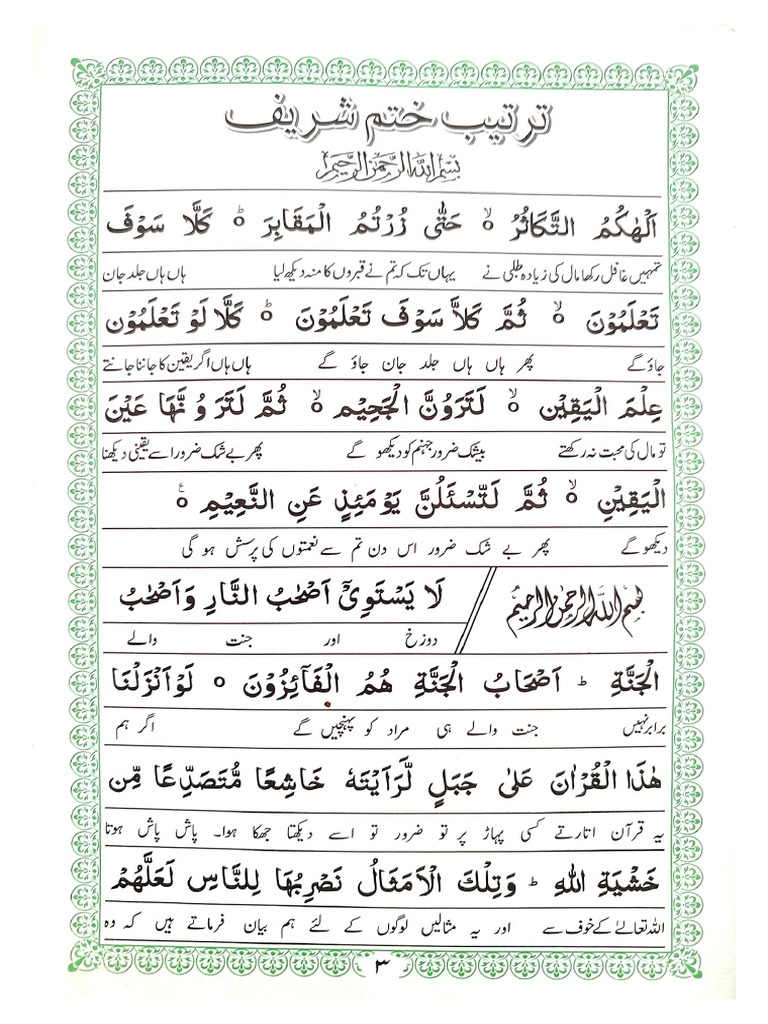 ترتیب ختم شریف
بسم الله الرحمن الرحيم
اَلْهٰكُمُ التَّكَاثُرُ ۙ حَتّٰى زُرْتُمُ الْمَقَابِرَ ؕ كَلَّا سَوْفَ
تمہیں غافل رکھا مال کی زیادہ طلبی نے یہاں تک کہ تم نے قبروں کا منہ دیکھ لیا ہاں ہاں جلد جان
تَعْلَمُوْنَ ۙ ثُمَّ كَلَّا سَوْفَ تَعْلَمُوْنَ ؕ كَلَّا لَوْ تَعْلَمُوْنَ
جاؤ گے پھر ہاں ہاں جلد جان جاؤ گے ہاں ہاں اگر یقین کا جاننا جانتے
عِلْمَ الْيَقِيْنِ ۙ لَتَرَوُنَّ الْجَحِيْمَ ۙ ثُمَّ لَتَرَوُنَّهَا عَيْنَ
تو مال کی محبت نہ رکھتے بیشک ضرور جہنم کو دیکھو گے پھر بے شک ضرور اسے یقینی دیکھنا
الْيَقِيْنِ ۙ ثُمَّ لَتُسْئَلُنَّ يَوْمَئِذٍ عَنِ النَّعِيْمِ
دیکھو گے پھر بے شک ضرور اس دن تم سے نعمتوں کی پرسش ہو گی
بسم الله الرحمن الرحيم لَا يَسْتَوِىْٓ اَصْحٰبُ النَّارِ وَاَصْحٰبُ
دوزخ اور جنت والے
الْجَنَّةِ ؕ اَصْحَابُ الْجَنَّةِ هُمُ الْفَآئِزُوْنَ لَوْاَنْزَلْنَا
برابر نہیں جنت والے ہی مراد کو پہنچیں گے اگر ہم
هٰذَا الْقُرْاٰنَ عَلٰى جَبَلٍ لَّرَاَيْتَهٗ خَاشِعًا مُّتَصَدِّعًا مِّنْ
یہ قرآن اتارتے کسی پہاڑ پر تو ضرور تو اسے دیکھتا جھکا ہوا۔ پاش پاش ہوتا
خَشْيَةِ اللهِ ؕ وَتِلْكَ الْاَمْثَالُ نَضْرِبُهَا لِلنَّاسِ لَعَلَّهُمْ
اللہ تعالیٰ کے خوف سے اور یہ مثالیں لوگوں کے لئے ہم بیان فرماتے ہیں کہ وہ
۳